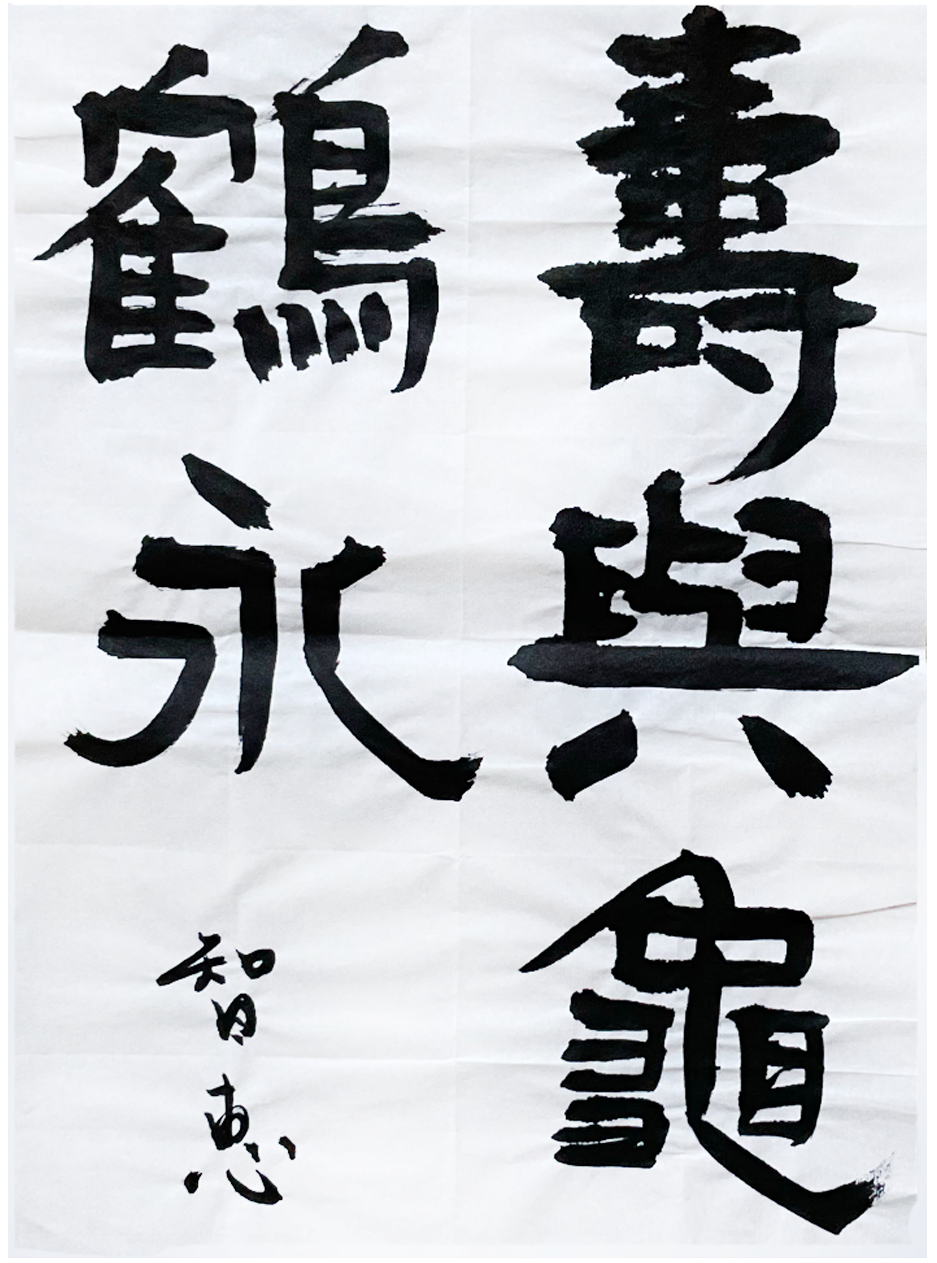 壽與龜
鶴永
智惠